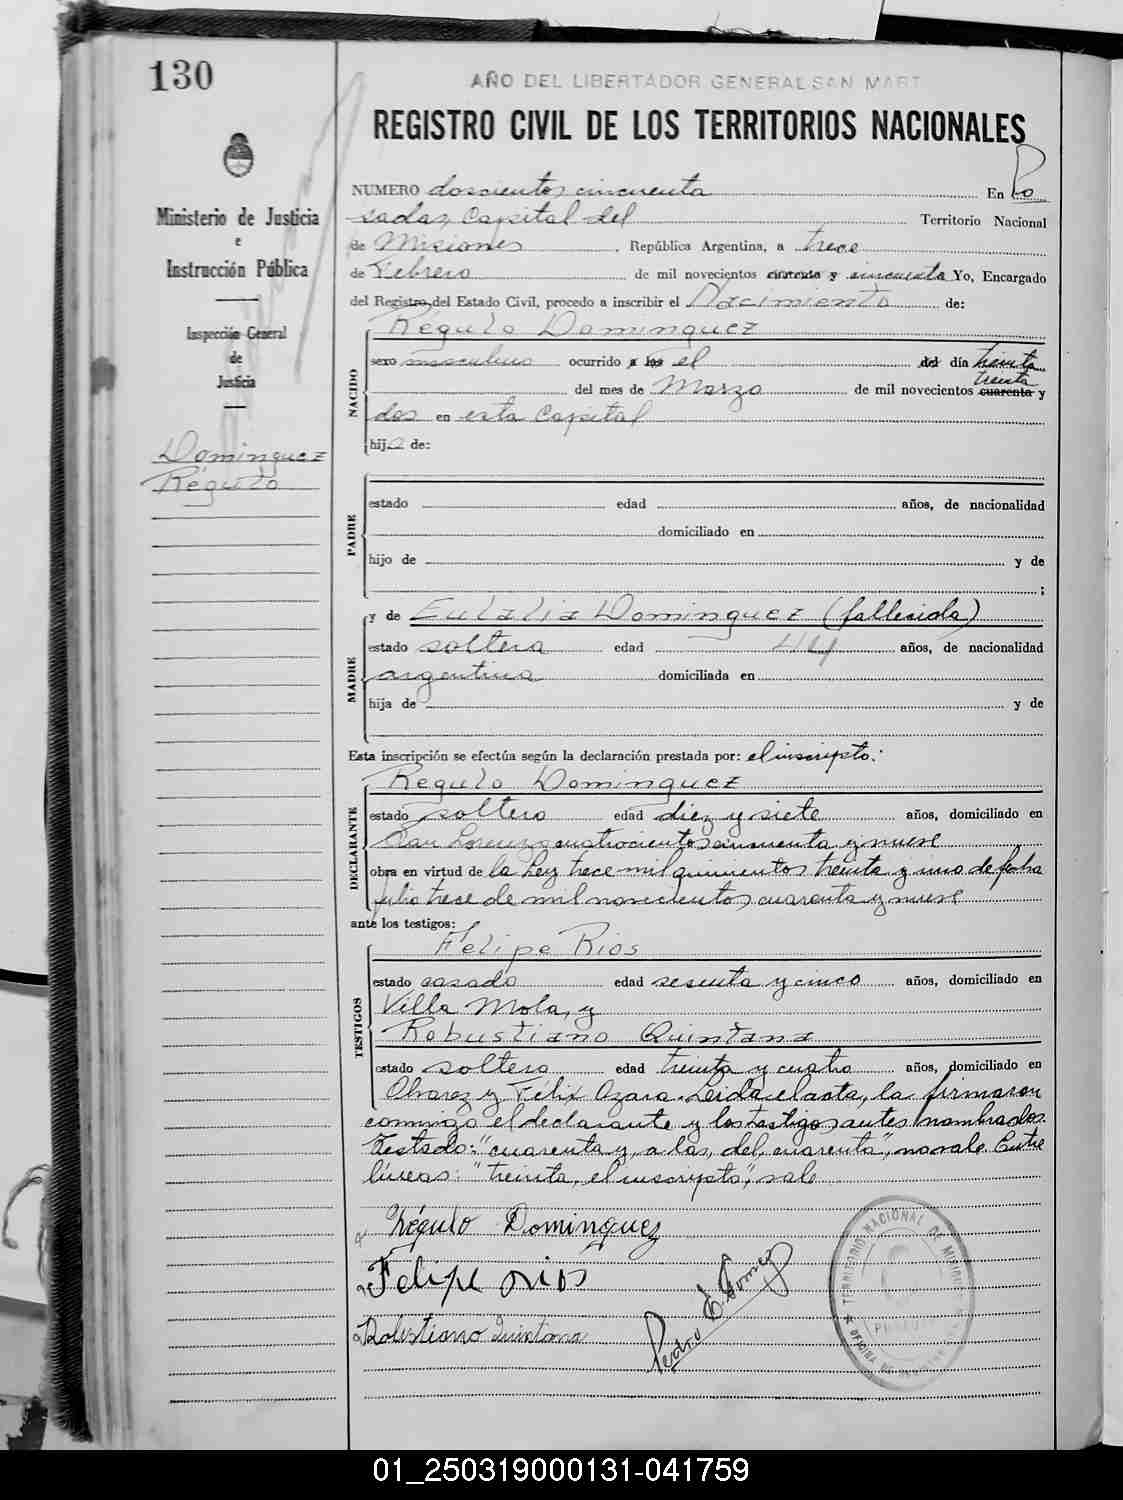 130
AÑO DEL LIBERTADOR GENERAL SAN MART
REGISTRO CIVIL DE LOS TERRITORIOS NACIONALES
Ministerio de Justicia
e
Instrucción Pública
Inspección General
de
Justicia
Dominguez
Régulo
NUMERO doscientos cincuenta En Po
sadas, Capital del Territorio Nacional
de Misiones, República Argentina, a trece
de Febrero de mil novecientos cuarenta y cincuenta Yo, Encargado
del Registro del Estado Civil, procedo a inscribir el Nacimiento de:
NACIDO
Régulo Dominguez
sexo masculino ocurrido a las el del día treinta
treinta
del mes de Marzo de mil novecientos cuarenta y
dos en esta Capital
hijo de:
PADRE
estado edad años, de nacionalidad
domiciliado en
hijo de y de
;
MADRE
y de Eulalia Dominguez (fallecida)
estado soltera edad años, de nacionalidad
argentina domiciliada en
hija de y de
Esta inscripción se efectúa según la declaración prestada por: el inscripto:
DECLARANTE
Régulo Dominguez
estado soltero edad diez y siete años, domiciliado en
San Lorenzo cuatrocientos cincuenta y nueve
obra en virtud de la Ley trece mil quinientos treinta y uno de fecha
julio trece de mil novecientos cuarenta y nueve
ante los testigos:
TESTIGOS
Felipe Rios
estado casado edad sesenta y cinco años, domiciliado en
Villa Mola, y
Robustiano Quintana
estado soltero edad treinta y cuatro años, domiciliado en
Chavez y Félix Azara. Leida el acta, la firmaron
conmigo el declarante y los testigos antes nombrados.
Testado: "cuarenta y, a las, del, cuarenta", no vale. Entre
líneas: "treinta, el inscripto", vale
Régulo Dominguez
Felipe rios
Robustiano Quintana
Pedro E. Gomez
TERRITORIO NACIONAL DE MISIONES
OFICINA DE REGISTRO CIVIL
POSADAS
01_250319000131-041759